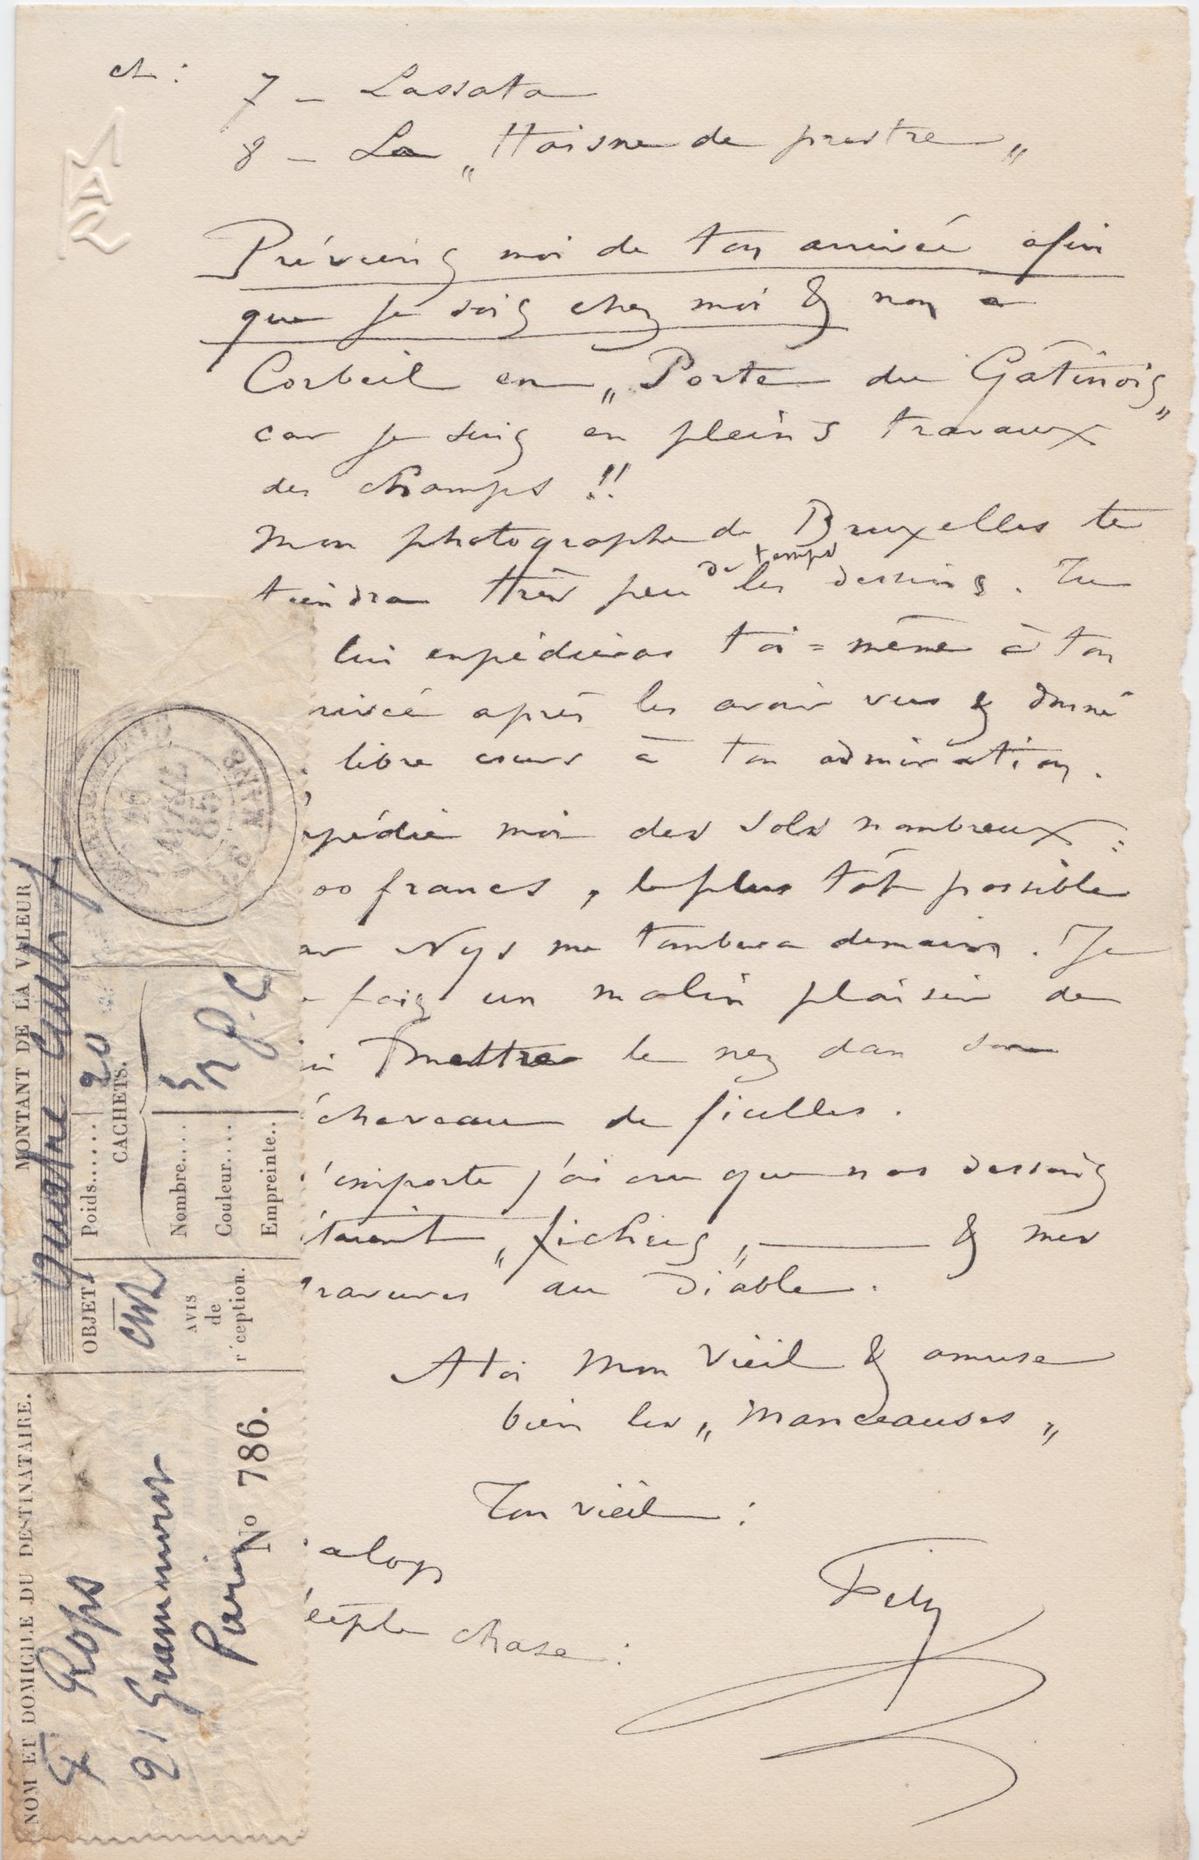 et :
7 – Lassata
8 – La „ Haisne de prestre „
Préviens moi de ton arrivée afin
que je sois chez moi & non a
Corbeil en „ Porte du Gâtinois „
car je suis en pleins travaux
des champs !!
Mon photographe de Bruxelles te
tiendra très peu de temps les dessins. Tu
lui expédieras toi = même à ton
rivée après les avoir vus & donné
libre cours à ton admiration.
xpédie moi des sols nombreux :
00 francs, le plus tôt possible
ar Nys me tombera demain. Je
fais un malin plaisir de
mettre le nez dans son
écheveau de ficelles.
'emporte j'ai cru que nos dessins
étaient „ fichus „ —— & mes
ravures au Diable.
A toi mon vieil & amuse
bien les „ Manceauses „
Ton vieil :
Fély
alop
eeple chase :
MAR
NOM ET DOMICILE DU DESTINATAIRE.
F Rops
21 Grammont
Paris
No 786.
OBJET
chr
AVIS
de
réception.
MONTANT DE LA VALEUR
Poids...... 20
CACHETS.
Nombre.... 5
Couleur....
Empreinte..
AVRIL
85